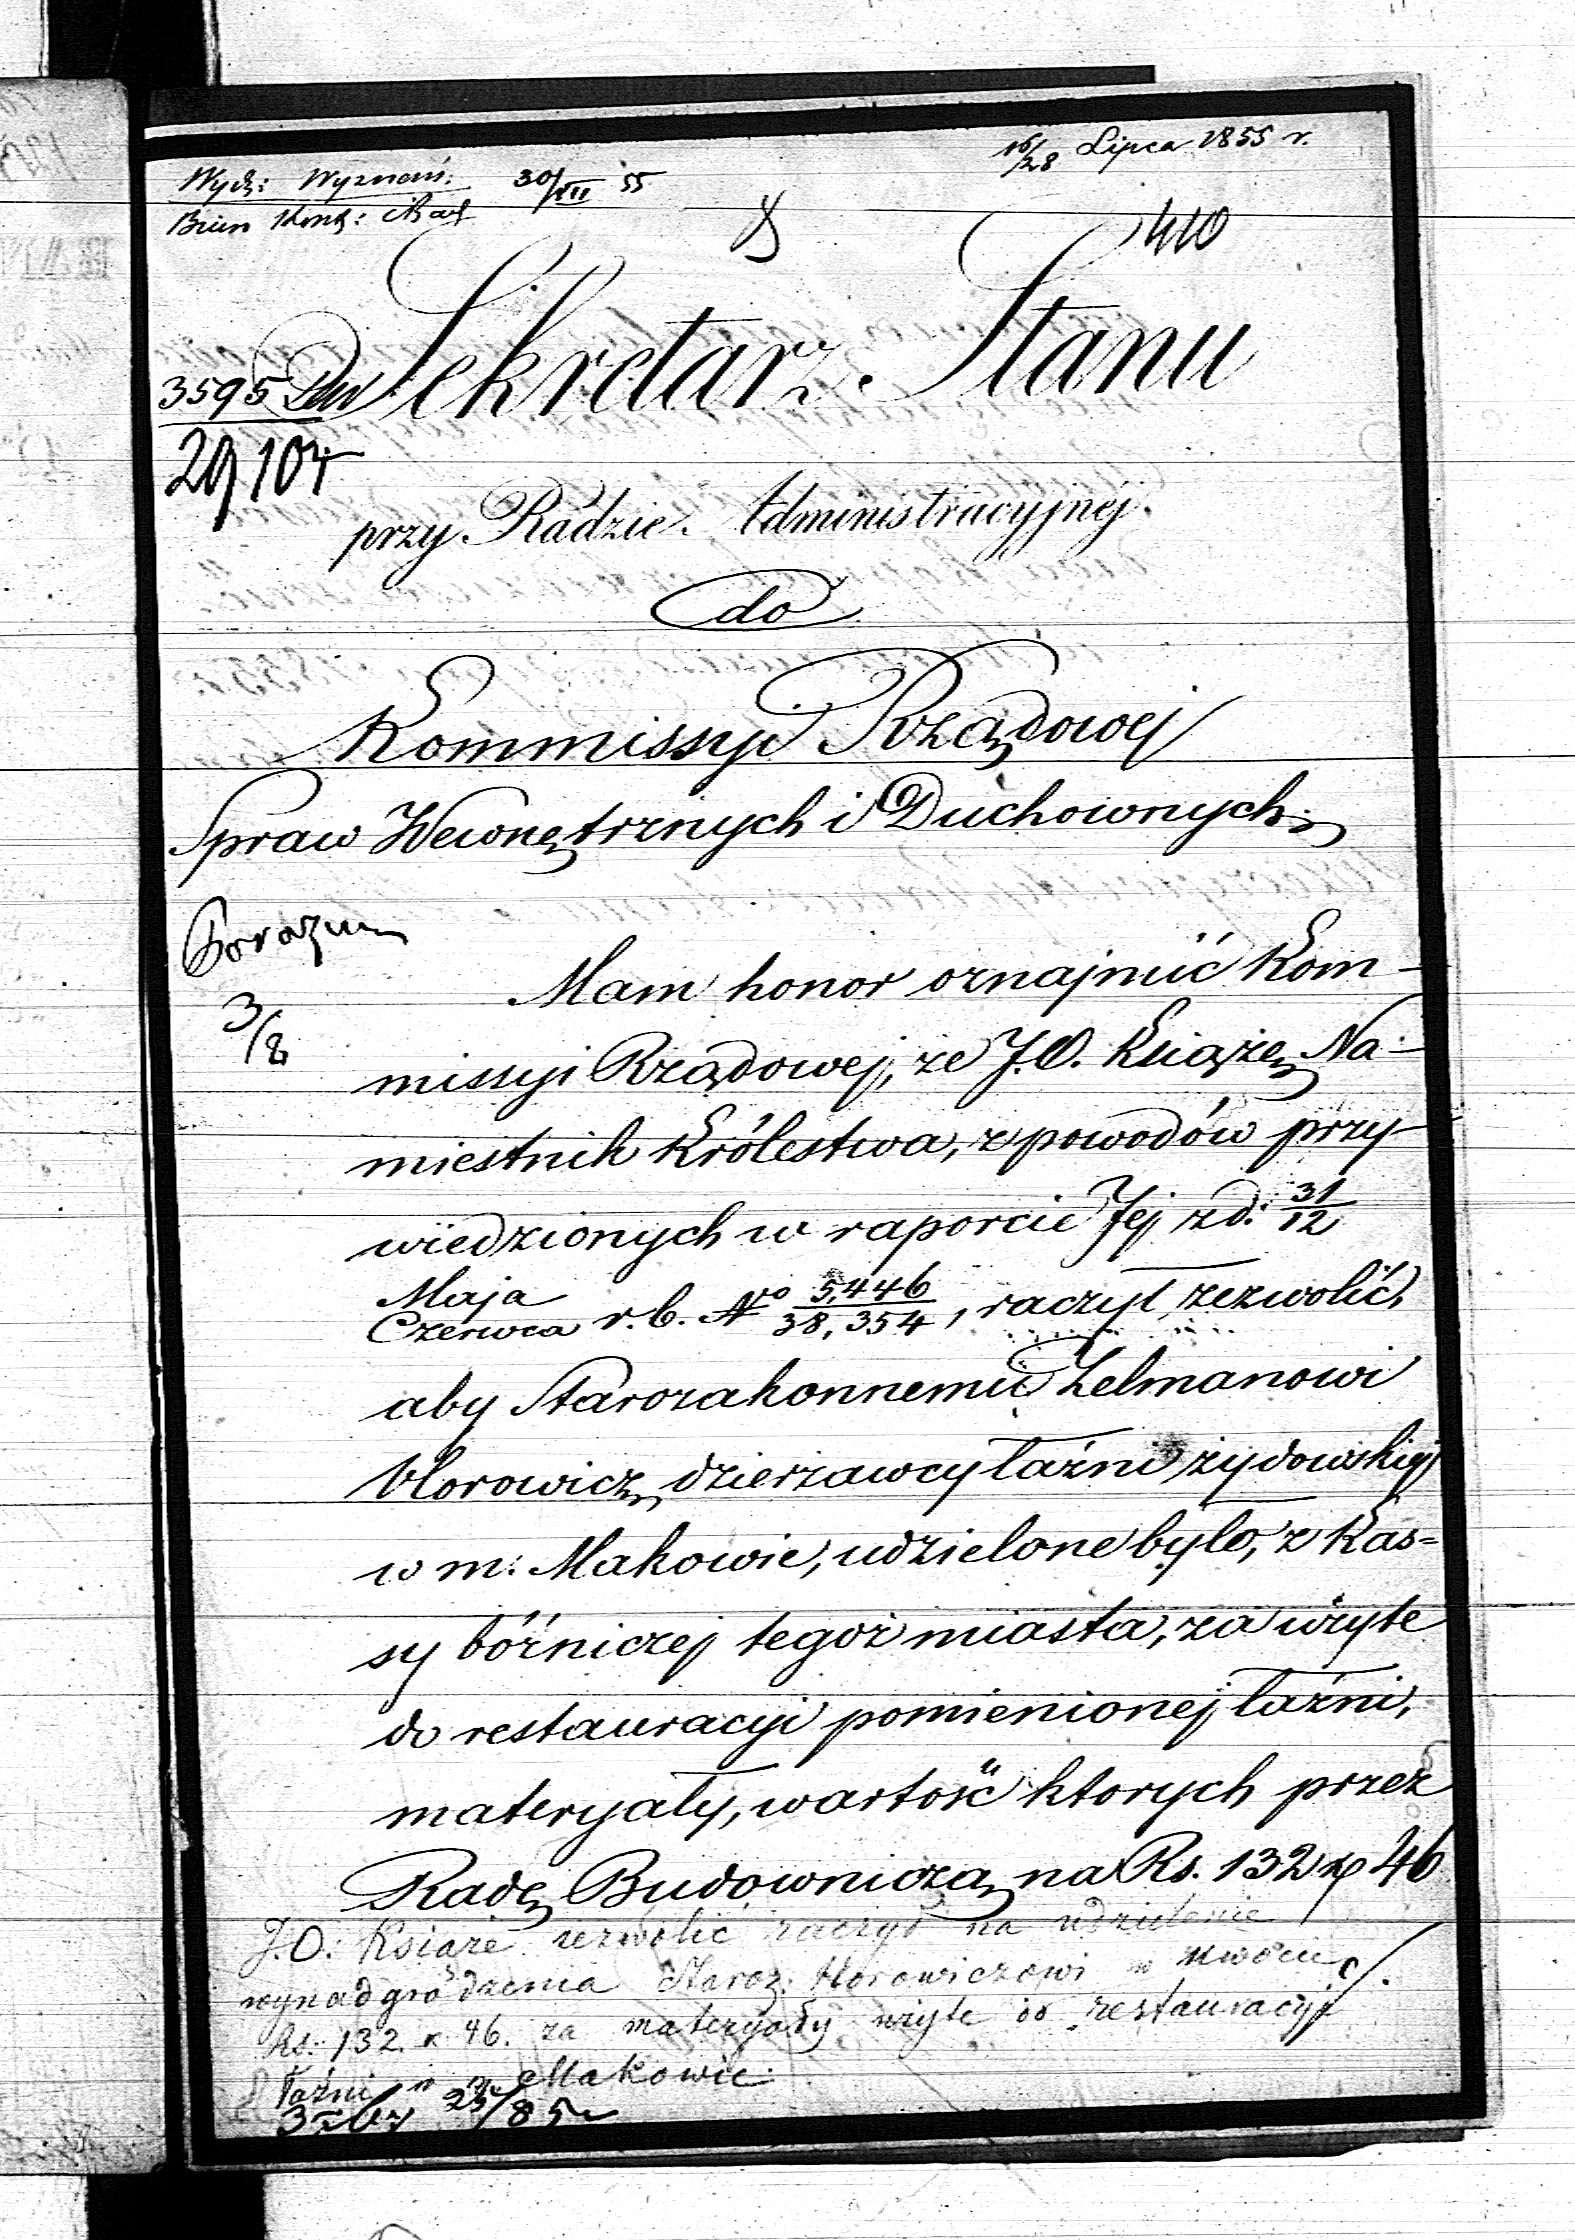 16/28 Lipca 1855 r.
Wydz: Wyznań: 30/VII 55
410
3595
29104
Sekretarz Stanu
przy Radzie Administracyjnéj
do
Kommissyi Rządowej
Spraw Wewnętrznych i Duchownych
3/8
Mam honor oznajmić Kom-
missyi Rządowej, że J.O. Książę Na-
miestnik Królestwa, z powodów przy-
wiedzionych w raporcie Jej z d: 31/12
Maja/Czerwca r.b. No 5,446/38,354, raczył zezwolić,
aby Starozakonnemu Zelmanowi
Horowicz, dzierżawcy łaźni żydowskiej
w m: Makowie, udzielone było, z Kas-
sy bóżniczej tegoż miasta, za użyte
do restauracyi pomienionej łaźni,
materyały, wartość ktorych przez
Radę Budowniczą na Rs. 132 kp 46
J.O. Książe zezwolić raczył na udzielenie
wynadgrodzenia Staroz: Horowiczowi w kwocie
Rs: 132 k 46. za materyały użyte do restauracyi
łaźni w m. Makowie.